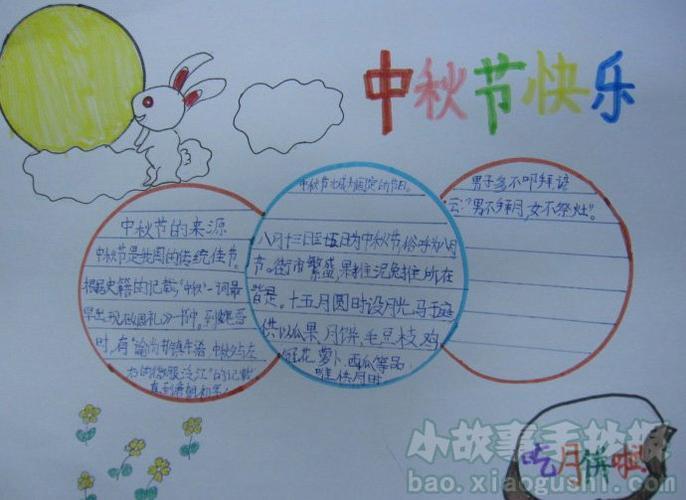 中秋节快乐
中秋节的来源
中秋节是我国的传统佳节。
根据史籍的记载，"中秋"一词最
早出现在《周礼》一书中。到魏晋
时，有"谕尚书镇牛渚，中秋夕与左
右微服泛江"的记载
直到唐朝初年
中秋节才成为固定的节日。
八月十三日至十五日为中秋节，俗呼为八月
节。街市繁盛，果摊泥兔摊所在
皆是。十五月圆时设月光马于庭
供以瓜果、月饼、毛豆枝、鸡
冠花、萝卜、西瓜等品
唯供月时
男子多不叩拜，谚
云："男不拜月，女不祭灶"。
吃月饼啦
小故事手抄报
bao.xiaogushi1.com